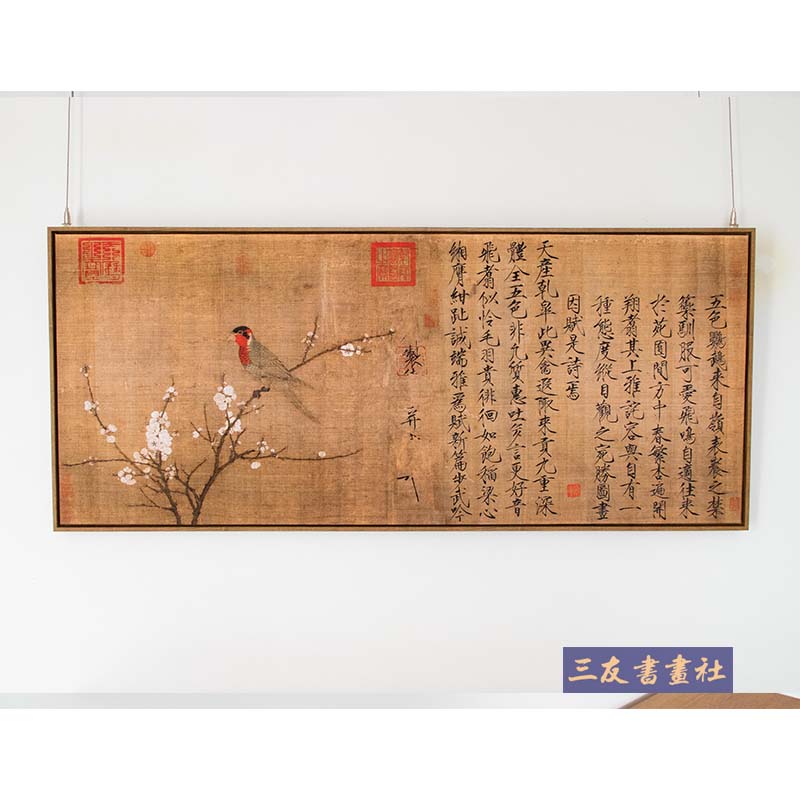 五色鸚鵡來自嶺表養之禁
籞馴服可愛飛鳴自適往來
於苑囿間方中春繁杏遍開
翔翥其上雅詫容與自有一
種態度縱目觀之宛勝圖畫
因賦是詩焉
天產乾皋此異禽遐陬來貢九重深
體全五色非凡質惠吐多言更好音
飛翥似怜毛羽貴徘徊如飽稻粱心
緗膺紺趾誠端雅爲賦新篇步武吟
三友書畫社